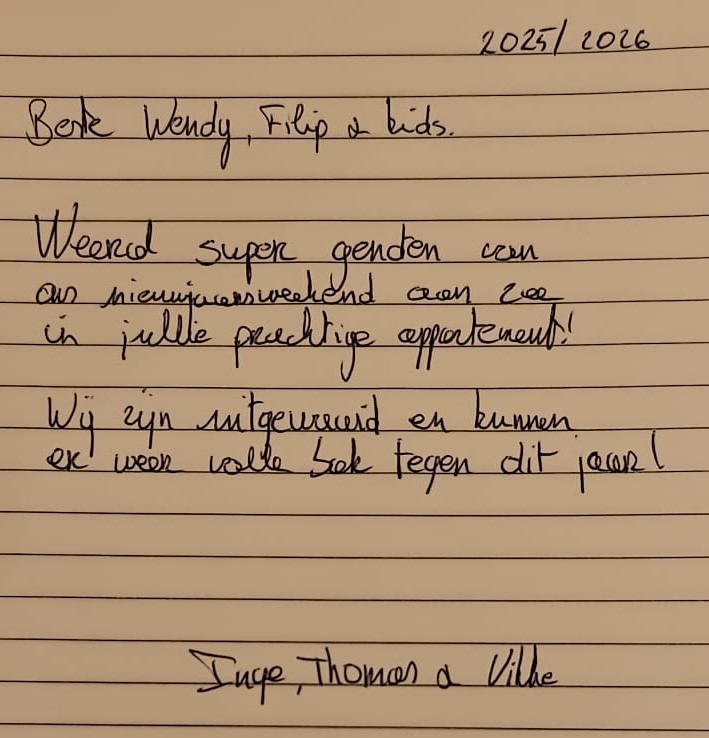 2025/2026
Beste Wendy, Filip & kids.
Weerd super genoten van
ons nieuwjaarsweekend aan zee
in jullie prachtige appartement!
Wij zijn uitgewaaid en kunnen
er weer volle bak tegen dit jaar!
Inge, Thomas & Vibke